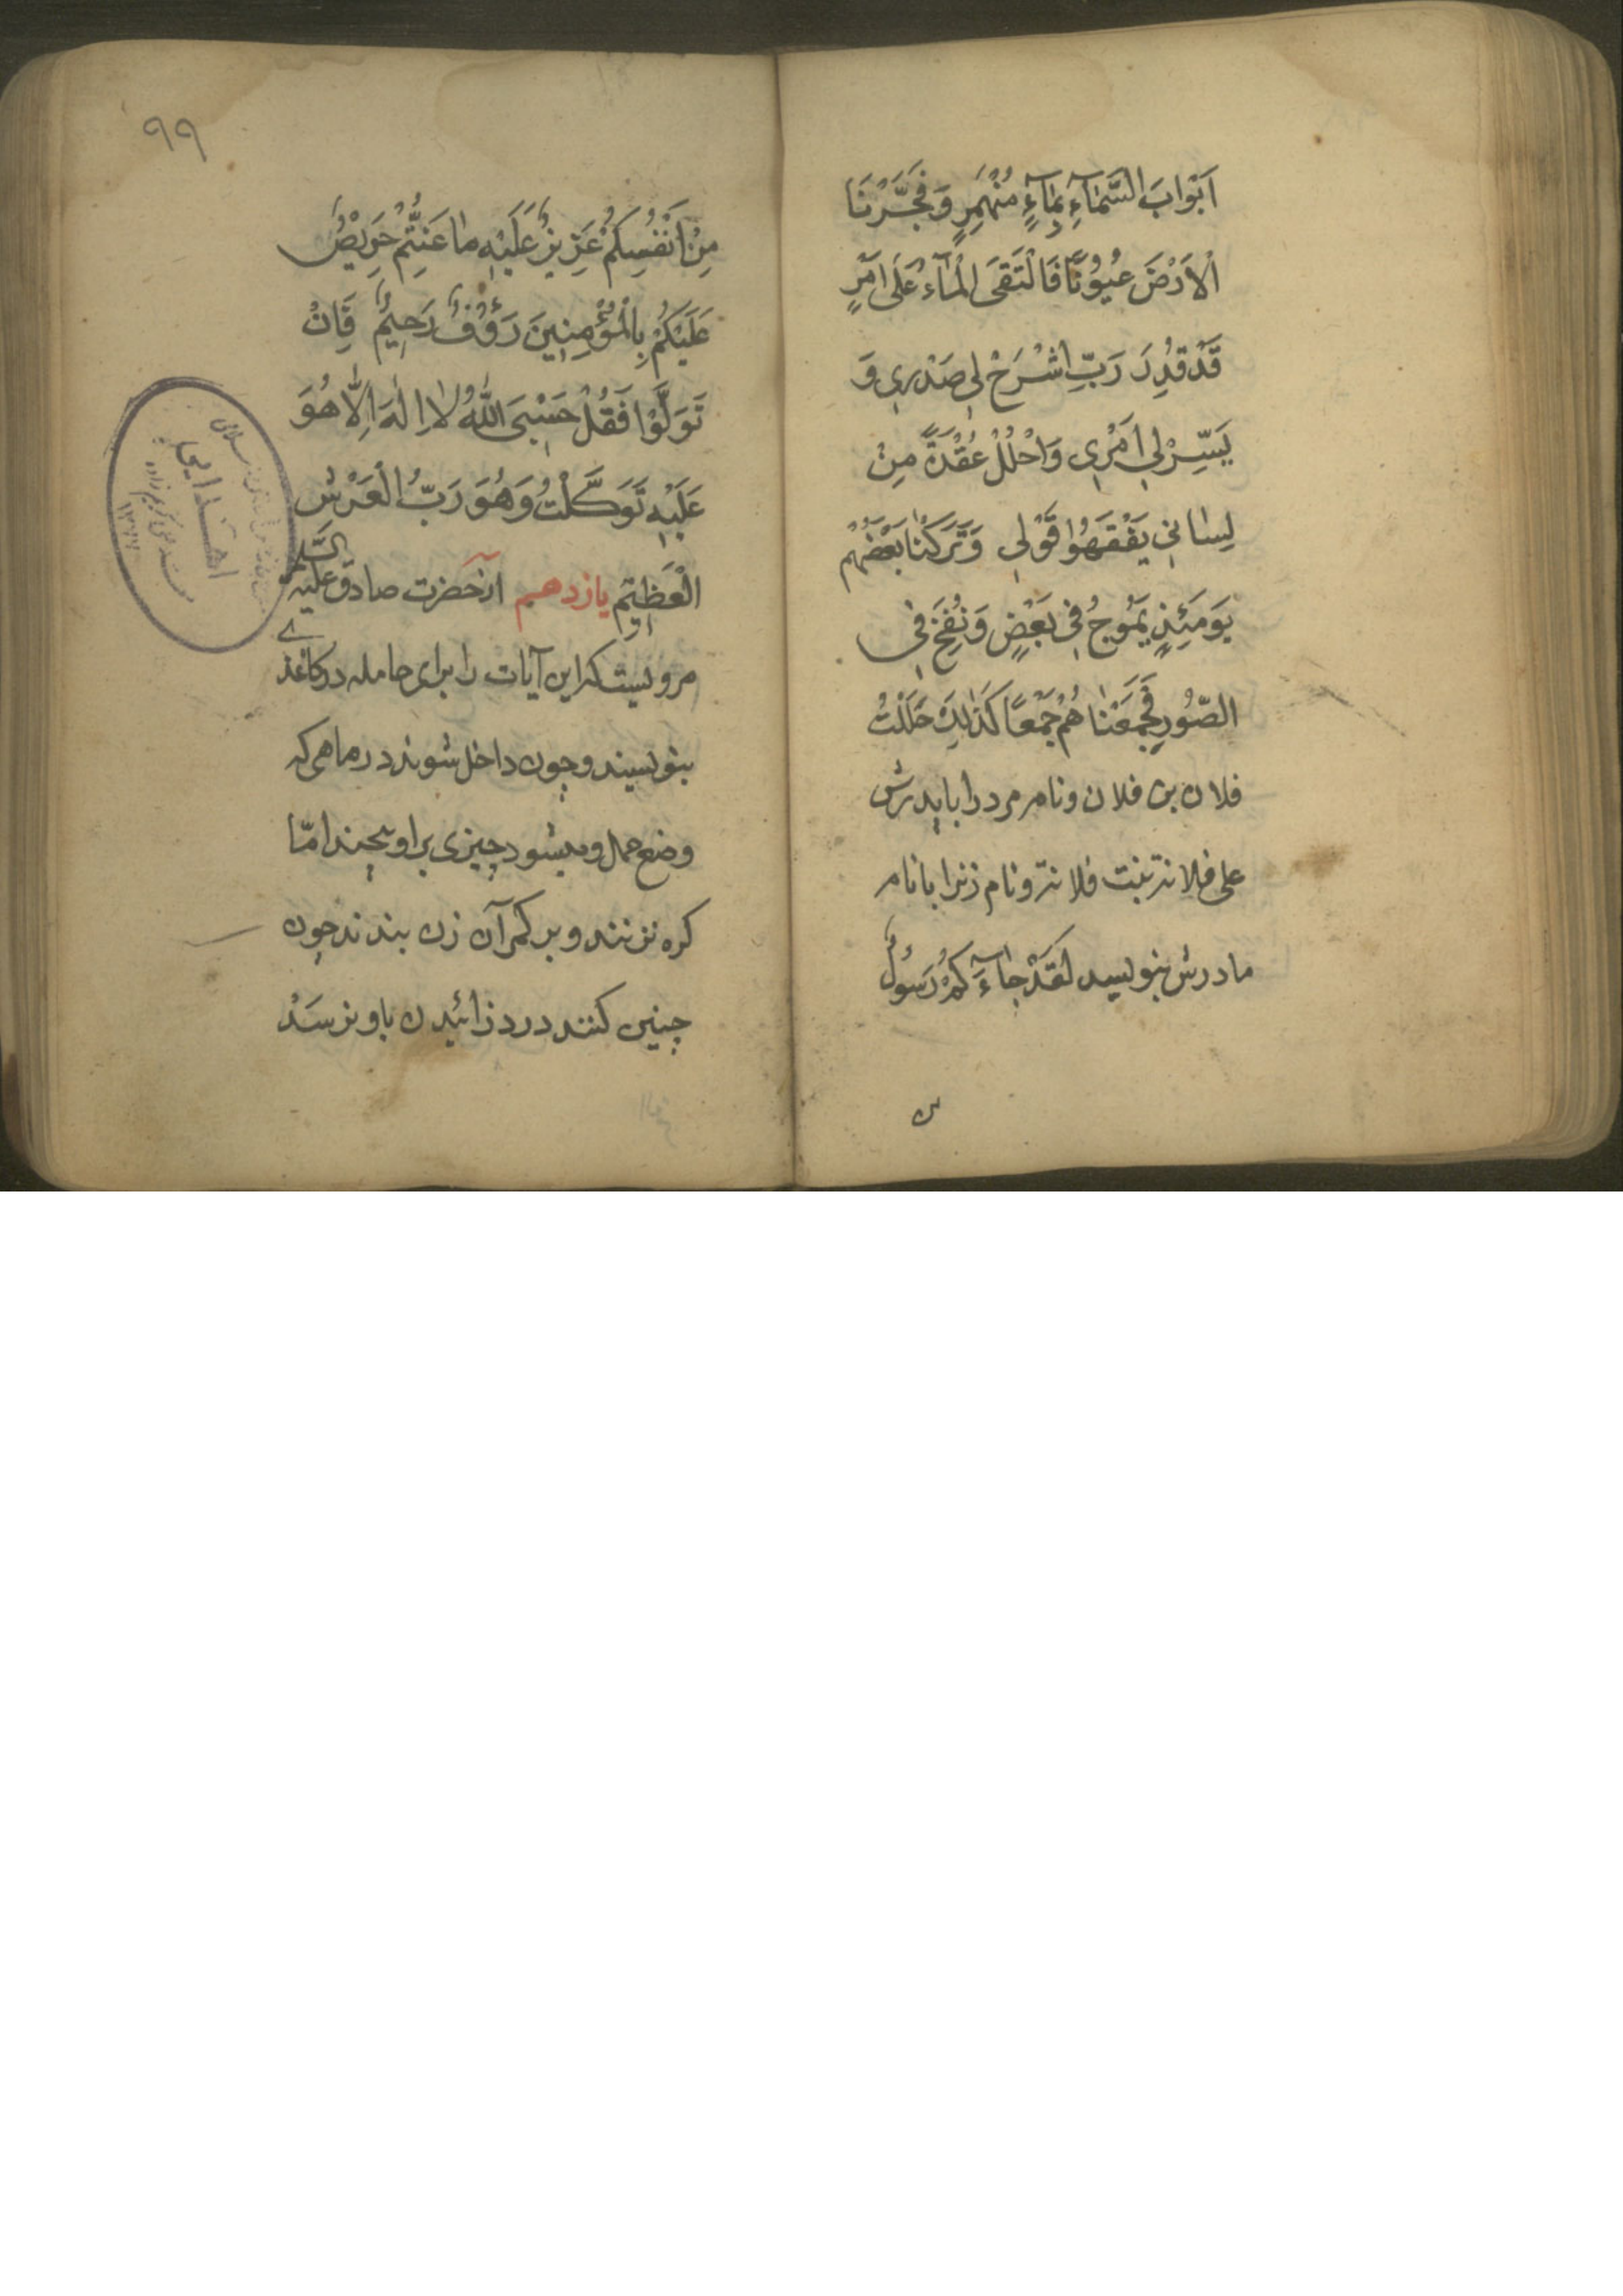 اَبْوابَ السَّمآءِ بِمآءٍ مُنْهَمِرٍ وَفَجَّرْنَا
الْاَرْضَ عُيُوْنًا فَالْتَقَى الْمآءُ عَلى اَمْرٍ
قَدْ قُدِرَ رَبِّ اشْرَحْ لِي صَدْرِي وَ
يَسِّرْ لِي اَمْرِي وَاحْلُلْ عُقْدَةً مِنْ
لِسانِي يَفْقَهُوا قَوْلِي وَتَرَكْنا بَعْضَهُمْ
يَوْمَئِذٍ يَمُوجُ فِي بَعْضٍ وَنُفِخَ فِي
الصُّورِ فَجَمَعْناهُمْ جَمْعًا كَذلِكَ حَلَلْتُ
فلان بن فلان ونام مرد را باپدرش
على فلانة بنت فلانة ونام زنرا بانام
مادرش بنويسد لَقَدْ جآءَكُمْ رَسُولٌ
س
٩٩
مِنْ اَنْفُسِكُمْ عَزِيزٌ عَلَيْهِ ما عَنِتُّمْ حَرِيْصٌ
عَلَيْكُمْ بِالْمُؤْمِنِينَ رَؤُفٌ رَحِيمٌ فَاِنْ
تَوَلَّوْا فَقُلْ حَسْبِيَ اللّٰهُ لا اِلٰهَ اِلَّا هُوَ
عَلَيْهِ تَوَكَّلْتُ وَهُوَ رَبُّ الْعَرْشِ
الْعَظِيمِ يازدهم ازآنحضرت صادق عليه السّلم
مرويست كه اين آيات را براى حامله در كاغذى
بنويسند وچون داخل شوند در ماهى كه
وضع حمل وميشود چيزى براو بپيچند امّا
كره نزنند و بر كمر آن زن بندند چون
چنين كنند درد زائيدن باو نرسَدْ
اهدايى
١٣٧٧